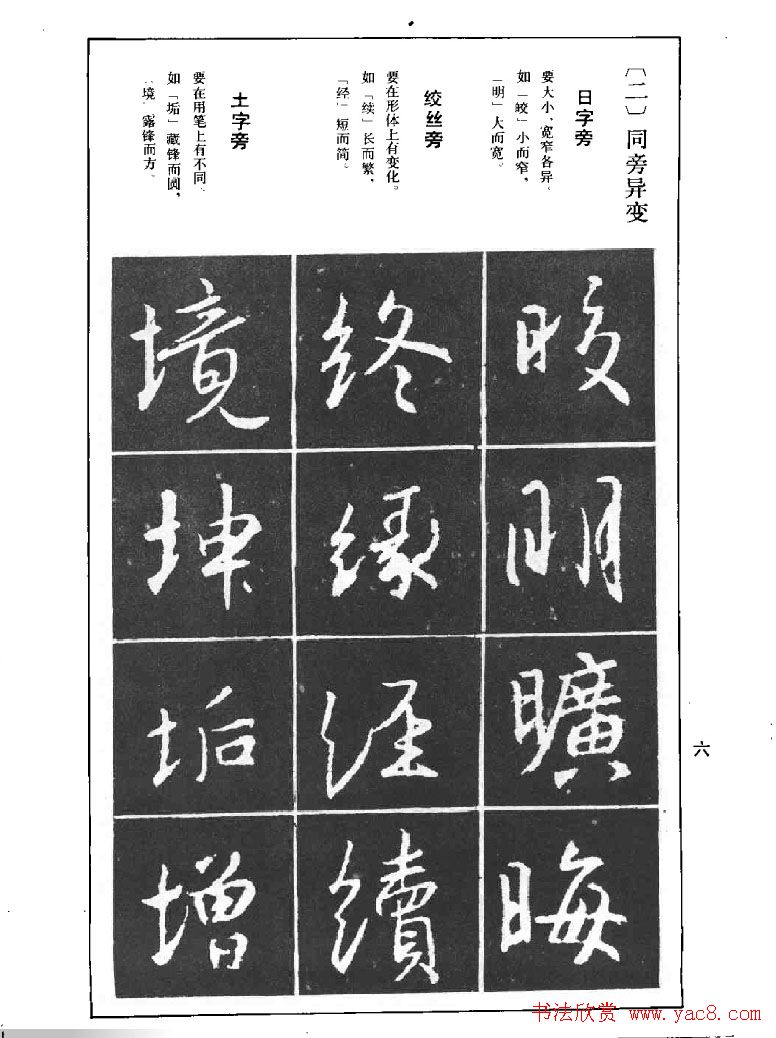 〔二〕同旁异变
日字旁
要大小、宽窄各异。
如「皎」小而窄，
「明」大而宽。
皎
明
曠
晦
绞丝旁
要在形体上有变化。
如「续」长而繁，
「经」短而简。
终
缘
经
續
土字旁
要在用笔上有不同。
如「垢」藏锋而圆，
「境」露锋而方。
境
坤
垢
增
六
书法欣赏 www.yac8.com